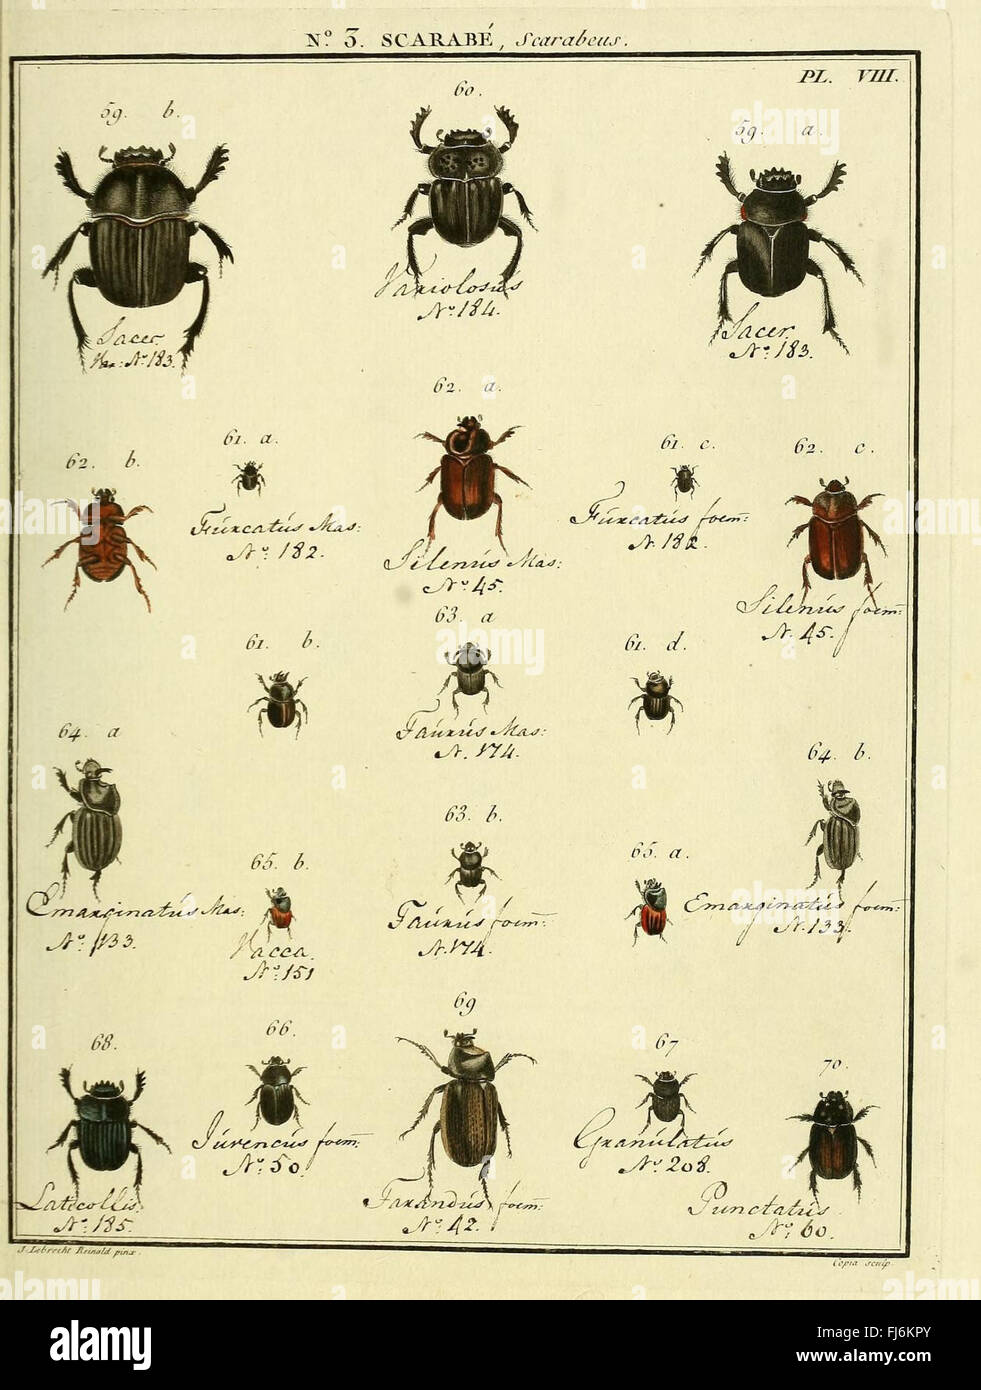 N.o 3. SCARABÉ, Scarabeus.
PL. VIII.
59. b.
60.
59. a.
Variolosus
No: 184.
Sacer.
Var: No: 183.
Sacer.
No: 183.
62. a.
62. b.
61. a.
61. c.
62. c.
Furcatus Mas:
No: 182.
Furcatus foem:
N. 182.
Silenus Mas:
No: 45.
Silenus foem:
N. 45.
63. a
61. b.
61. d.
Taurus Mas:
N. 174.
64. a
64. b.
63. b.
65. b.
65. a.
Emarginatus Mas:
No: 133.
Vacca.
No: 151
Taurus foem:
N. 174.
Emarginatus foem:
N. 133.
69
68.
66.
67
70.
Juvencus foem:
No: 50.
Granulatus
No: 208.
Latecollis.
No: 185.
Tarandus foem:
No: 42.
Punctatus.
No: 60.
J. Lebrecht Reinold pinx.
Copia sculp.
alamy
Image ID: FJ6KPY
www.alamy.com